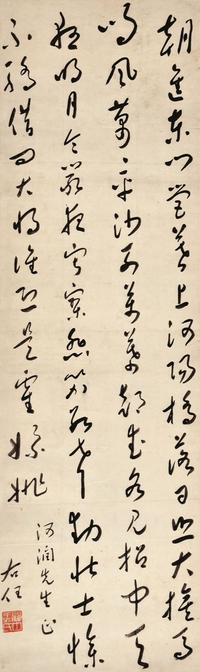 朝進東門營暮上河陽橋落日照大旗馬
鳴風蕭々平沙列萬幕部伍各見招中天
懸明月令嚴夜寂寥悲笳數聲動壯士慘
不驕借問大將誰恐是霍嫖姚
河潤先生正
右任